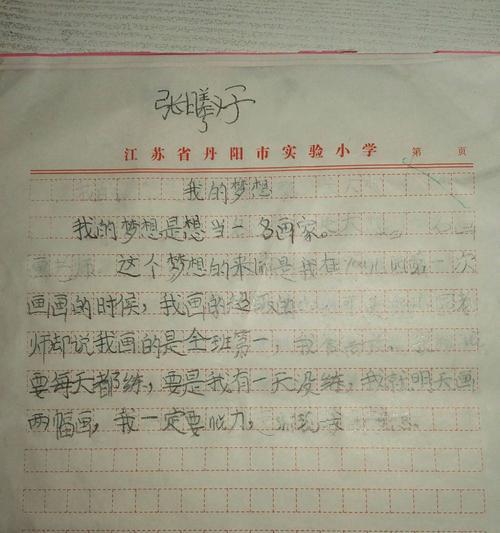 张曦子
江苏省丹阳市实验小学 第 页
我的梦想
我的梦想是想当一名画家。
这个梦想的来源是我在 的第一次
画画的时候，我画的
师却说我画的是全班第一，我
要每天都练，要是我有一天没练，我就明天画
两幅画，我一定要努力，